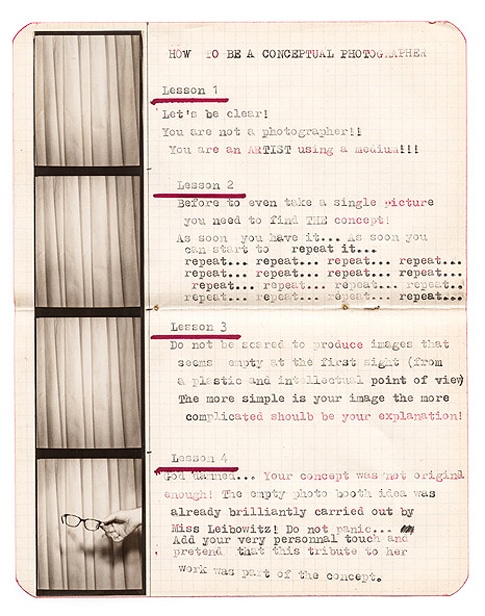 HOW TO BE A CONCEPTUAL PHOTOGRAPHER
Lesson 1
Let's be clear!
You are not a photographer!!
You are an ARTIST using a medium!!!
Lesson 2
Before to even take a single picture
you need to find THE concept!
As soon you have it... As soon you
can start to repeat it...
repeat... repeat... repeat... repeat...
repeat... repeat... repeat... repeat...
repeat... repeat... repeat... repeat..
repeat... repeat... repeat... repeat...
Lesson 3
Do not be scared to produce images that
seems empty at the first sight (from
a plastic and intellectual point of view)
The more simple is your image the more
complicated shoulb be your explanation!
Lesson 4
God damned... Your concept was not original
enough! The empty photo booth idea was
already brilliantly carried out by
Miss Leibowitz! Do not panic...
Add your very personnal touch and
pretend that this tribute to her
work was part of the concept.